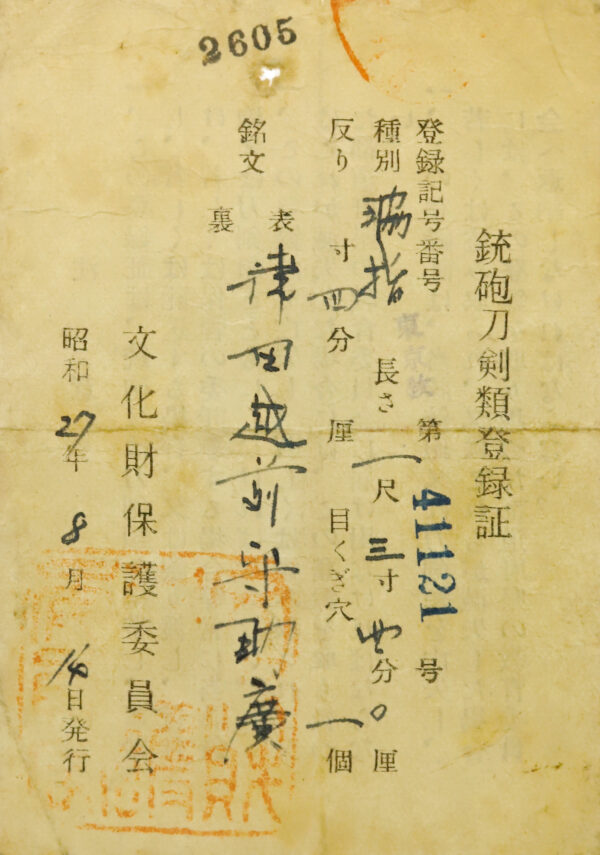 2605
銃砲刀剣類登録証
登録記号番号 東京 第 41121 号
種別 脇指 長さ 一尺 三寸 四分 〇厘
反り 寸 四分 厘 目くぎ穴 一個
銘文 表 津田越前守助廣
裏
文化財保護委員会
昭和 27年 8月 日発行